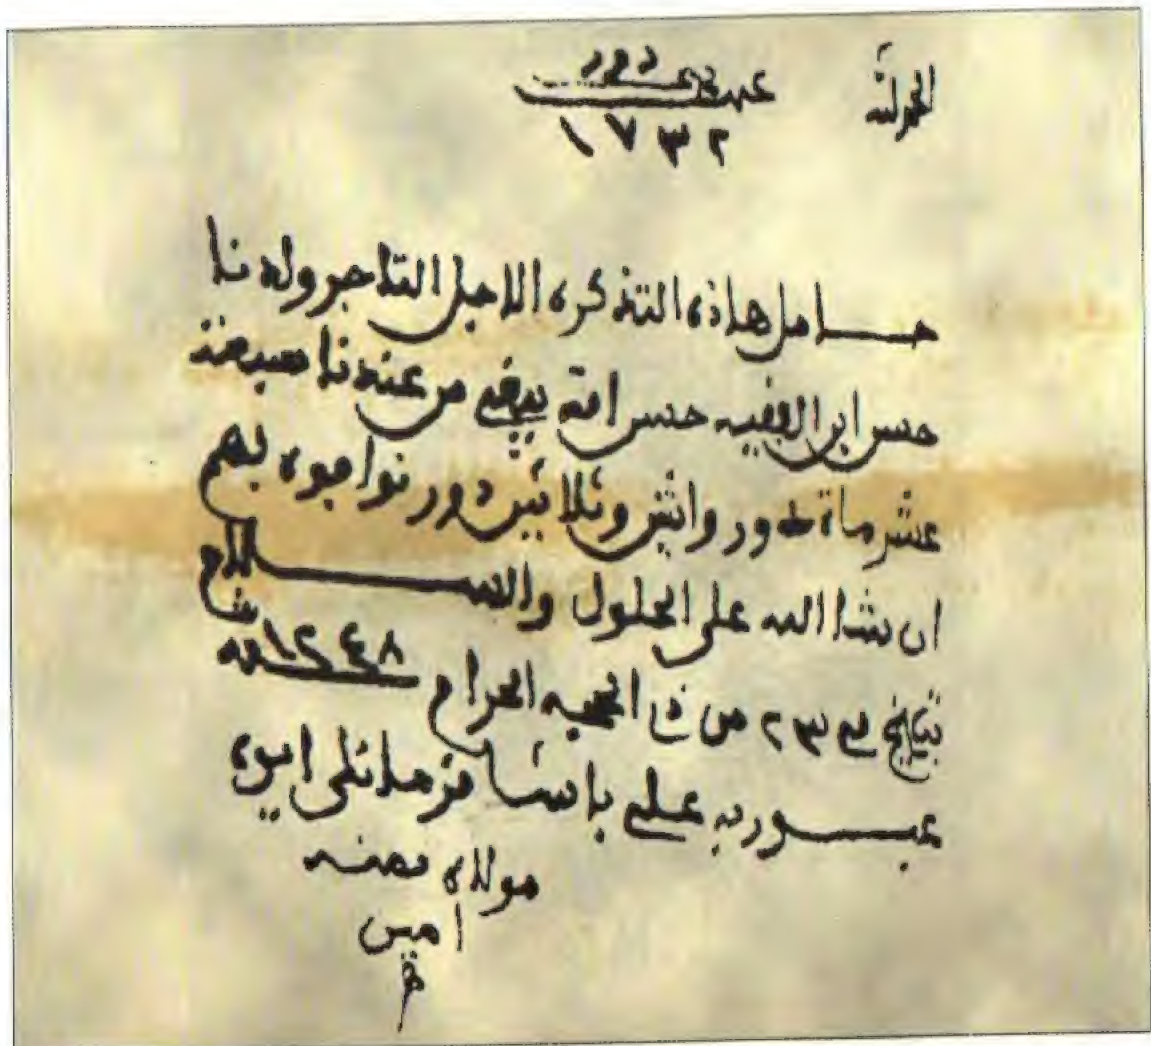 الحمد لله
عدد دورو
١٧٣٢
حامل هاذه التذكره الاجل التاجر ولدنا
حسن ابن الفقيه حسن انه يبقى من عندنا سبعة
عشر ماة دورو واثنين وثلاثين دورو نواجبوه بهم
ان شا الله على الحلول والسلام
بتاريخ في ٢٣ من ذي الحجيه الحرام ١٢٤٨ سنة
عبد ربه علي باشا قرمانلي ايده
مولاه بمنه
امين